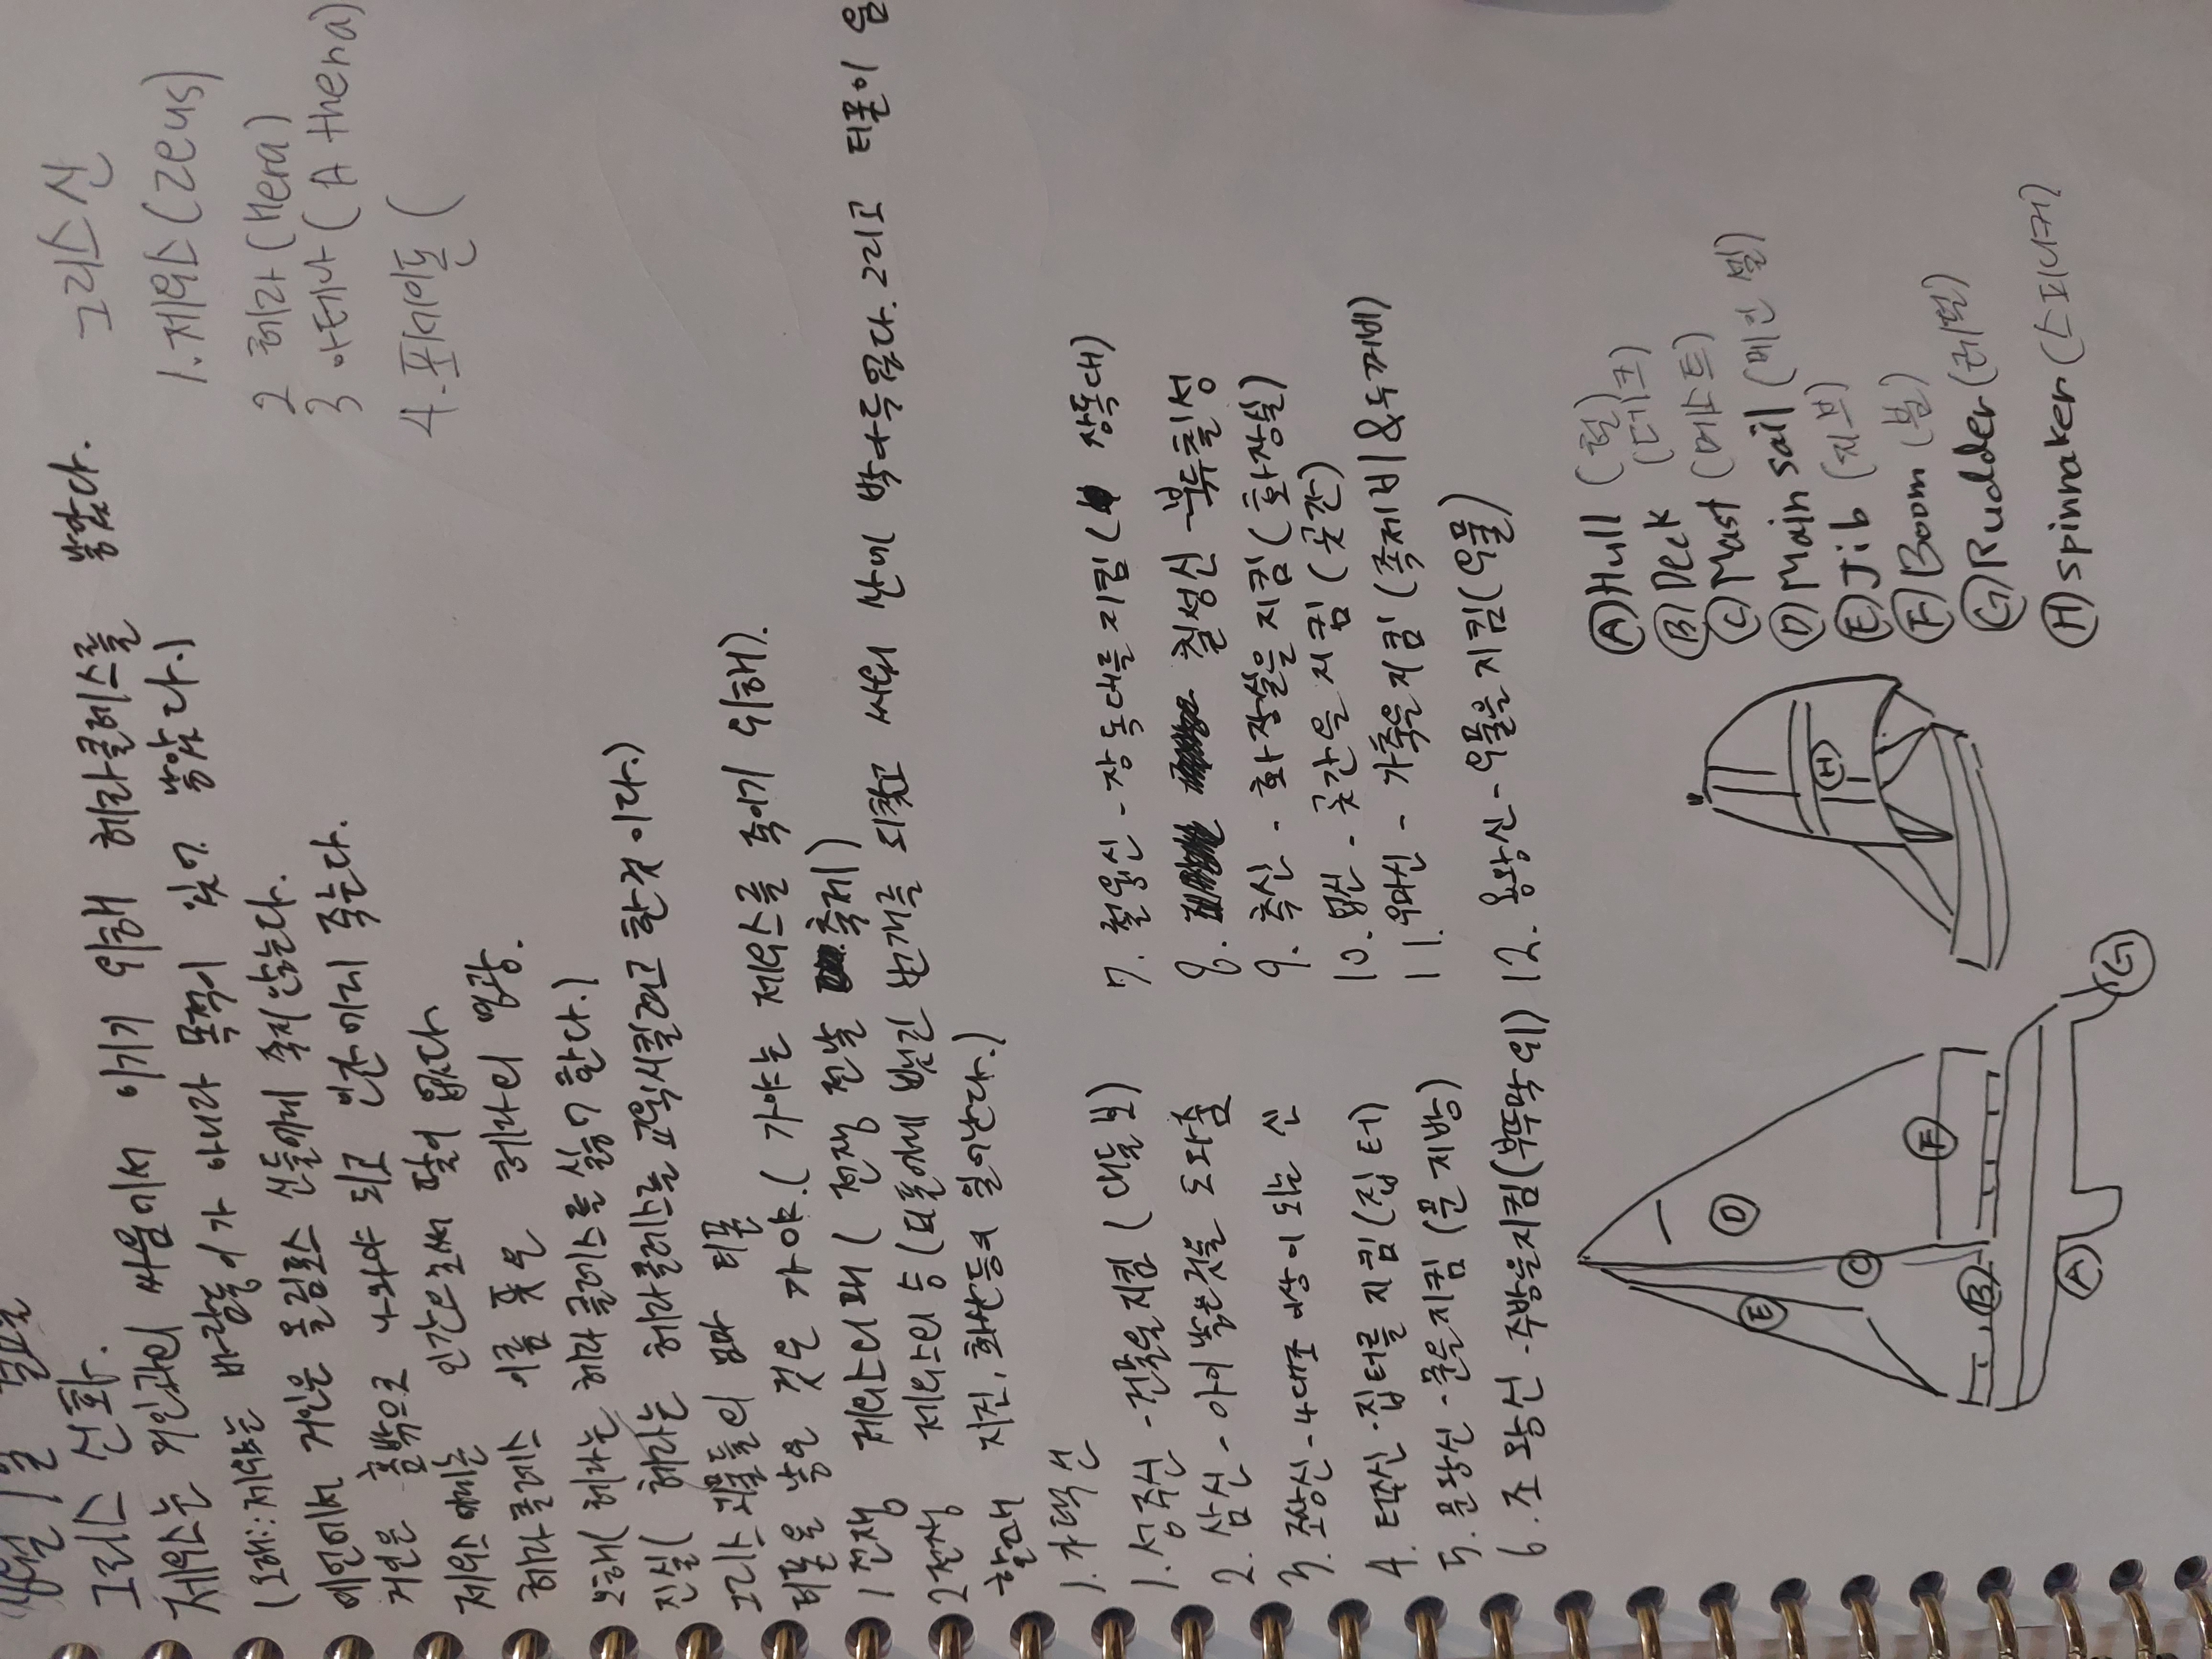 그리스 신화.
제우스는 거인과의 싸움에서 이기기 위해 헤라클레스를 낳았다.
(오해::제우스는 바람둥이가 아니라 목적이 있어 낳았다.)
예언에서 거인은 올림포스 신들에게 죽지 않는다.
거인은 흙밖으로 나와야 되고 인간에게 죽는다.
제우스에게는 인간으로써 딸이 없다
헤라클레스 이름 뜻은 헤라의 영광.
오해(헤라는 헤라클레스를 싫어한다.)
진실(헤라는 헤라클레스를 교육시킬려고 한것이다.)
그리스 괴물들의 아빠 티폰
티폰을 낳은 것은 가이아.(가이아는 제우스를 죽이기 위해).
1전쟁 제우스의 패(전쟁 전날 축제)
2전쟁 제우스의 승(티폰에게 뺏긴 번개를 되찾고 싸워 산에 박아두었다.그리고 티폰이 움
할때 지진,화산등이 일어난다.)
그리스신
1.제우스(Zeus)
2 헤라(Hera)
3 아테나(Athena)
4.포세이돈(
1.가택신
1.성주신-건물을지킴(대들보)
2.삼신-아이 낳는것을 도와줌
3.조상신-4대조 이상이 되는 신
4.터주신-집터를 지킴(집터)
5.문왕신-문을지킴(문지방)
6.조왕신-주방을지킴(부뚜막 위)
7.철융신-장독대를 지킴(장독대)
8. 칠성신-북두칠성
9.측신-화장실을 지킴(화장실)
10.업신-곳간을 지킴(곳간)
11.우마신-가축을 지킴(족제비&두꺼비)
12.용왕신-우물을 지킴(우물)
Ⓐ Hull (헐)
Ⓑ Deck (데크)
Ⓒ Mast (메스트)
Ⓓ Main sail (메인 셀)
Ⓔ Jib (지브)
Ⓕ Boom (붐)
Ⓖ Rudder (러덜)
Ⓗ spinnaker (스피너커)
E
D
C
F
B
A
G
H